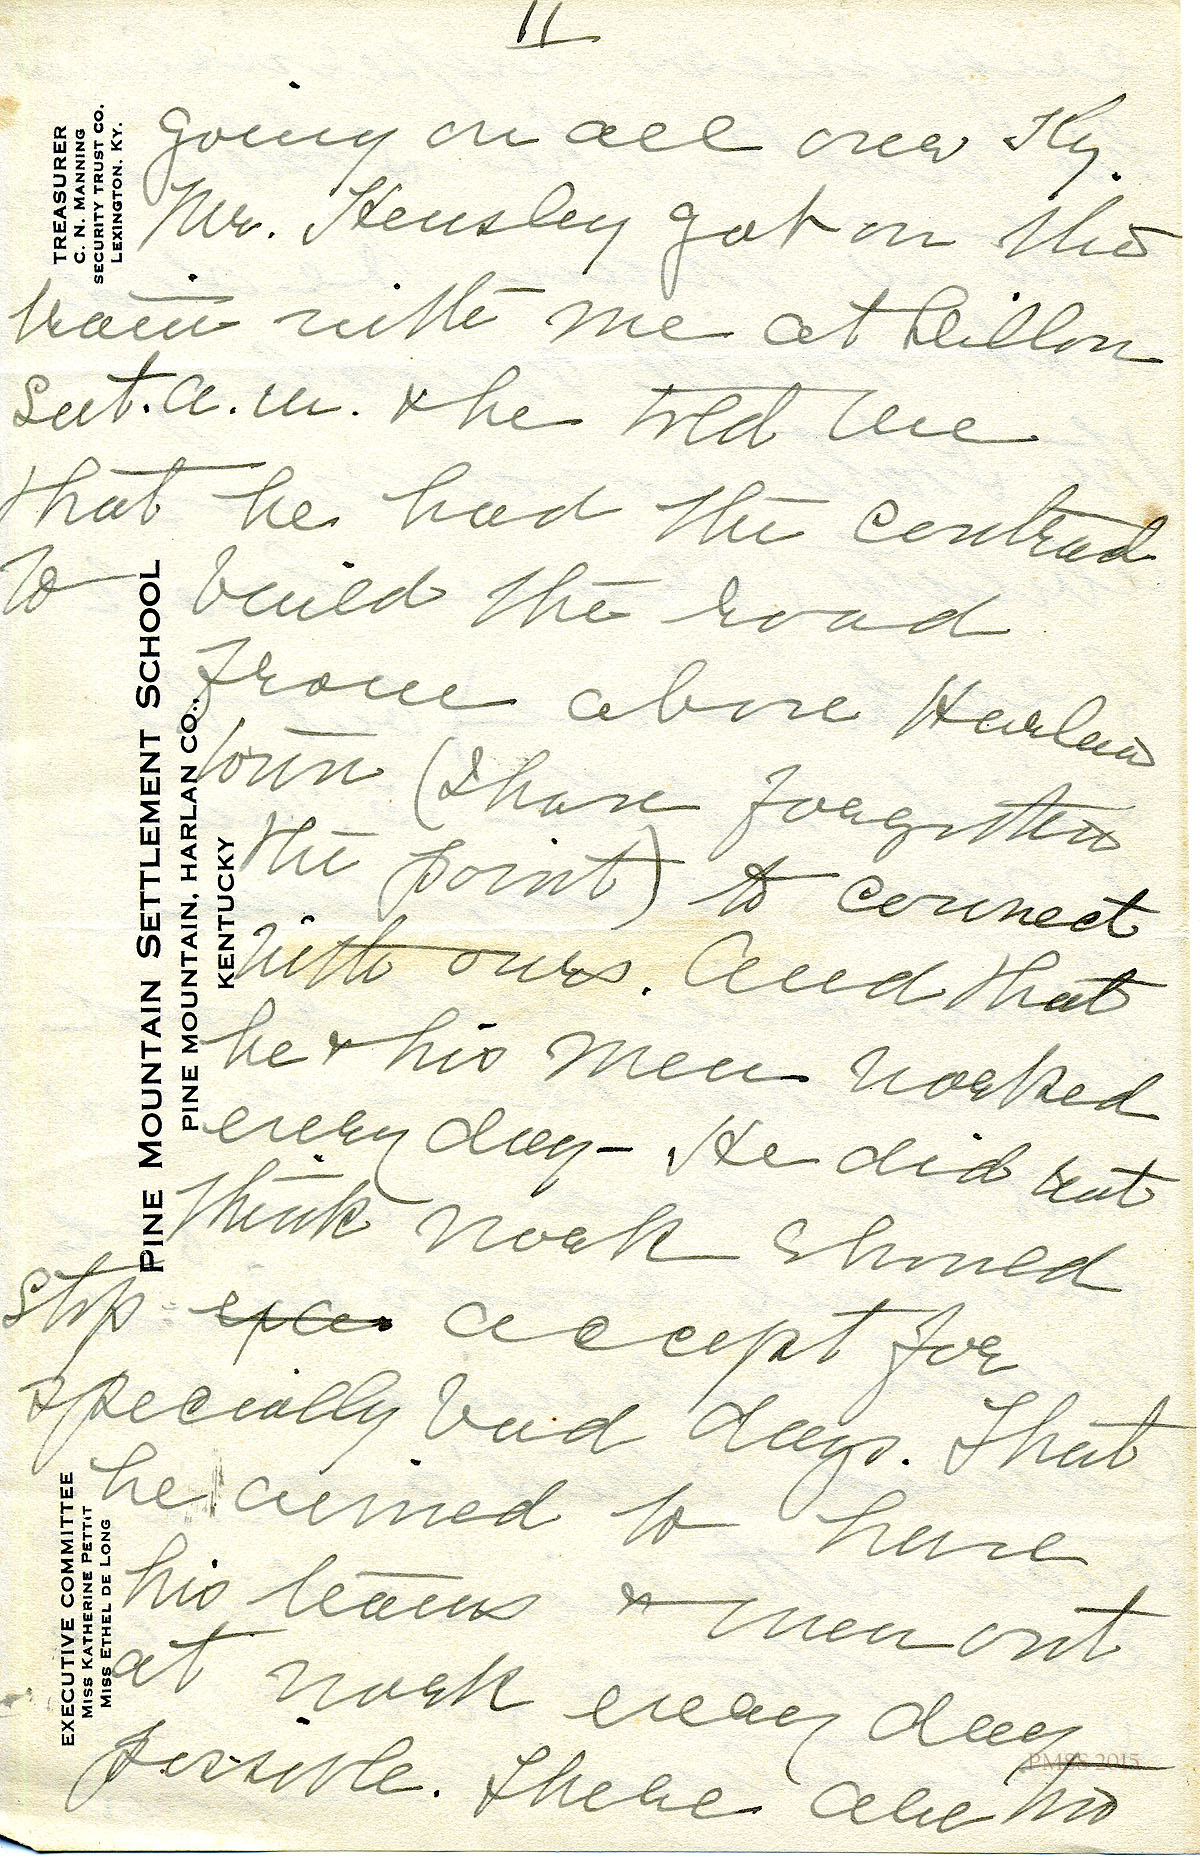 11
going on all over Ky.
Mr. Hensley got on the
train with me at Dillon
Sat. a.m. & he told me
that he had the contract
to build the road
from above Harlan
town (I have forgotten
the point) to connect
with ours. And that
he & his men worked
every day - He did not
think work should
stop accept for
specially bad days. That
he aimed to have
his teams & men out
at work every day
possible. There are two
TREASURER
C. N. MANNING
SECURITY TRUST CO.
LEXINGTON, KY.
PINE MOUNTAIN SETTLEMENT SCHOOL
PINE MOUNTAIN, HARLAN CO.,
KENTUCKY
EXECUTIVE COMMITTEE
MISS KATHERINE PETTIT
MISS ETHEL DE LONG
PMSS 2015